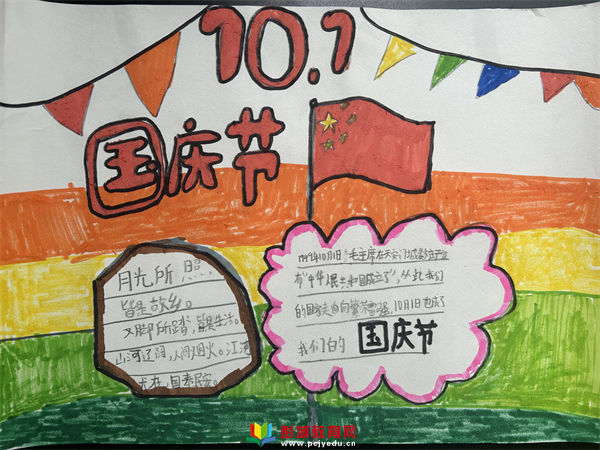 10.1
国庆节
月光所照
皆是故乡。
双脚所踏,皆是生活。
山河辽阔,人间烟火。江河
国泰民安。
1949年10月1日 毛主席在天安门城
布"中华人民共和国成立了",从此我们
的国家走向繁荣富强,10月1日也成了
我们的国庆节
www.pcjyedu.cn